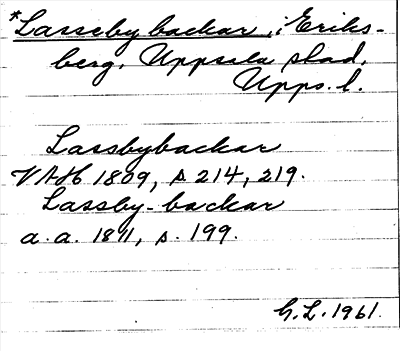 *Lasseby backar, i Eriks-
berg, Uppsala stad,
Upps. l.
Lassbybackar
VAH 1809, s. 214, 219.
Lassby-backar
a. a. 1811, s. 199.
G.L. 1961.